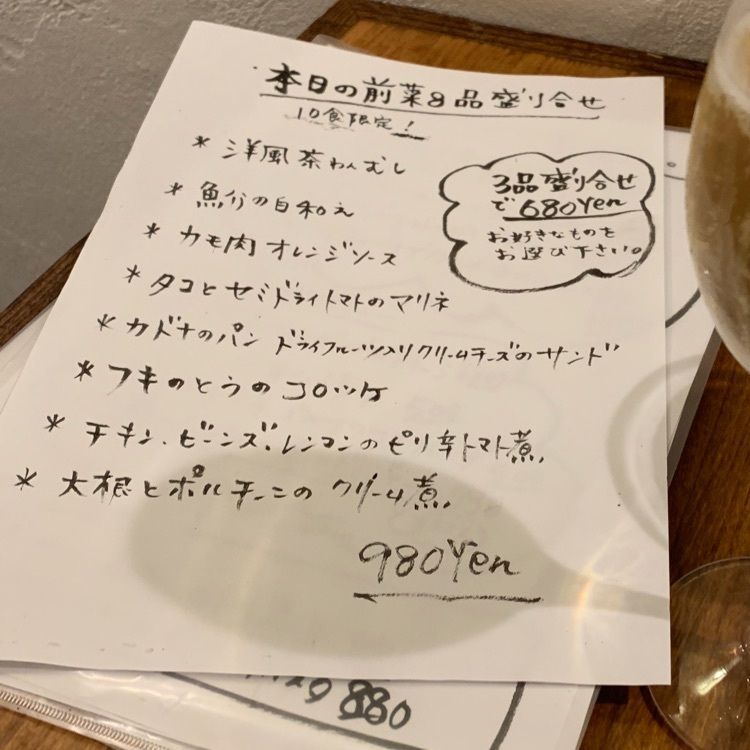 本日の前菜8品盛り合せ
10食限定!
* 洋風茶わんむし
3品盛り合せ
で680Yen
お好きなものを
お選び下さい。
* 魚介の白和え
* カモ肉オレンジソース
* タコとセミドライトマトのマリネ
* カドナのパン ドライフルーツ入りクリームチーズのサンド
* フキのとうのコロッケ
* チキン、ビーンズ、レンコンのピリ辛トマト煮
* 大根とポルチーニのクリーム煮
980Yen
880